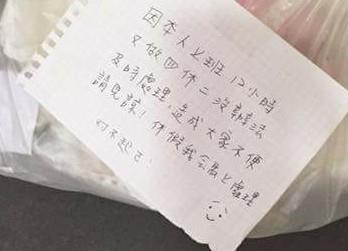 因本人上班12小時
又做四休二沒辦法
及時處理,造成大家不便
請見諒!休假我會處理
對不起!